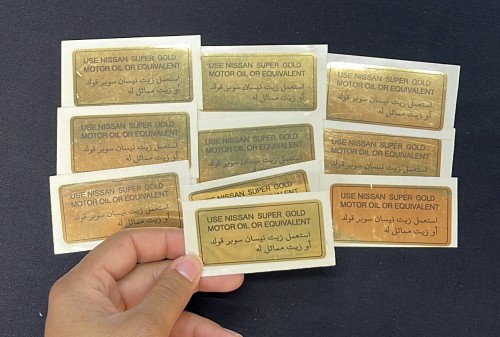 USE NISSAN SUPER GOLD
MOTOR OIL OR EQUIVALENT
استعمل زيت نيسان سوبر قولد
أو زيت مماثل له
USE NISSAN SUPER GOLD
MOTOR OIL OR EQUIVALENT
استعمل زيت نيسان سوبر قولد
أو زيت مماثل له
USE NISSAN SUPER GOLD
MOTOR OIL OR EQUIVALENT
استعمل زيت نيسان سوبر قولد
أو زيت مماثل له
USE NISSAN SUPER GOLD
MOTOR OIL OR EQUIVALENT
استعمل زيت نيسان سوبر قولد
أو زيت مماثل له
USE NISSAN SUPER GOLD
MOTOR OIL OR EQUIVALENT
استعمل زيت نيسان سوبر قولد
USE NISSAN SUPER GOLD
MOTOR OIL OR EQUIVALENT
استعمل زيت نيسان سوبر قولد
أو زيت مماثل له
USE NISSAN SUPER GOLD
MOTOR OIL OR EQUIVALENT
استعمل زيت نيسان سوبر قولد
أو زيت مماثل له
USE NISSAN SUPER GOLD
EQUIVALENT
USE NISSAN SUPER GOLD
MOTOR OIL OR EQUIVALENT
استعمل زيت نيسان سوبر قولد
أو زيت مماثل له
USE NISSAN SUPER GOLD
MOTOR OIL OR EQUIVALENT
استعمل زيت نيسان سوبر قولد
أو زيت مماثل له